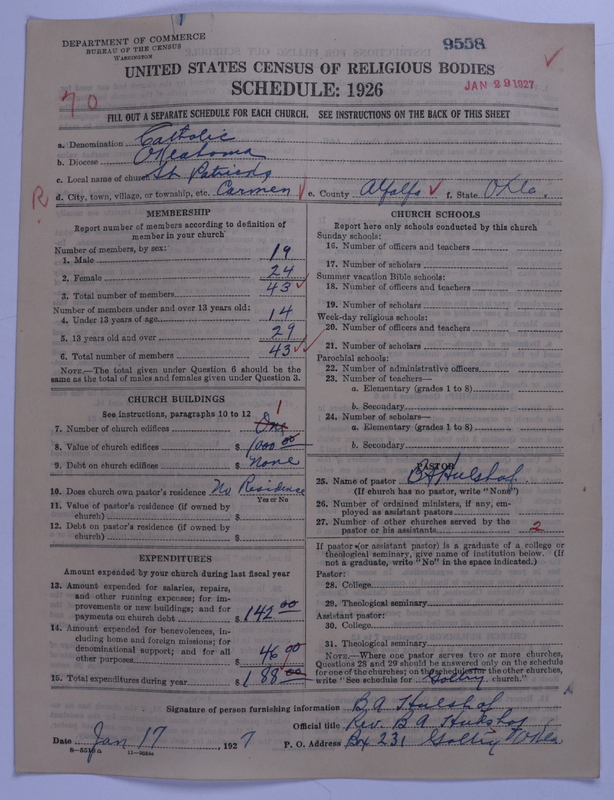 DEPARTMENT OF COMMERCE
BUREAU OF THE CENSUS
WASHINGTON
9558
UNITED STATES CENSUS OF RELIGIOUS BODIES
SCHEDULE: 1926
JAN 29 1927
70
FILL OUT A SEPARATE SCHEDULE FOR EACH CHURCH. SEE INSTRUCTIONS ON THE BACK OF THIS SHEET
a. Denomination Catholic
b. Diocese Oklahoma
c. Local name of church St Patricks
R d. City, town, village, or township, etc. Carmen e. County Alfalfa f. State Okla.
MEMBERSHIP
Report number of members according to definition of member in your church
Number of members, by sex:
1. Male 19
2. Female 24
3. Total number of members 43
Number of members under and over 13 years old:
4. Under 13 years of age 14
5. 13 years old and over 29
6. Total number of members 43
NOTE.—The total given under Question 6 should be the
same as the total of males and females given under Question 3.
CHURCH BUILDINGS
See instructions, paragraphs 10 to 12
1
7. Number of church edifices One
8. Value of church edifices $ 1000 00
9. Debt on church edifices $ None
10. Does church own pastor's residence No Residence
Yes or No
11. Value of pastor's residence (if owned by
church) $
12. Debt on pastor's residence (if owned by
church) $
EXPENDITURES
Amount expended by your church during last fiscal year
13. Amount expended for salaries, repairs,
and other running expenses; for im-
provements or new buildings; and for
payments on church debt $ 142 00
14. Amount expended for benevolences, in-
cluding home and foreign missions; for
denominational support; and for all
other purposes $ 46 00
15. Total expenditures during year $ 188 00
CHURCH SCHOOLS
Report here only schools conducted by this church
Sunday schools:
16. Number of officers and teachers
17. Number of scholars
Summer vacation Bible schools:
18. Number of officers and teachers
19. Number of scholars
Week-day religious schools:
20. Number of officers and teachers
21. Number of scholars
Parochial schools:
22. Number of administrative officers
23. Number of teachers—
a. Elementary (grades 1 to 8)
b. Secondary
24. Number of scholars—
a. Elementary (grades 1 to 8)
b. Secondary
PASTOR
25. Name of pastor B A Hulshof
(If church has no pastor, write "None")
26. Number of ordained ministers, if any, em-
ployed as assistant pastors
27. Number of other churches served by the
pastor or his assistants 2
If pastor (or assistant pastor) is a graduate of a college or
theological seminary, give name of institution below. (If
not a graduate, write "No" in the space indicated.)
Pastor:
28. College
29. Theological seminary
Assistant pastor:
30. College
31. Theological seminary
NOTE.—Where one pastor serves two or more churches,
Questions 28 and 29 should be answered only on the schedule
for one of the churches; on the schedule for the other churches,
write "See schedule for Goltry church."
Signature of person furnishing information B A Hulshof
Official title Rev. B A Hulshof
Date Jan 17, 1927 P. O. Address Box 231 Goltry Okla
8—5510a 11—9588a